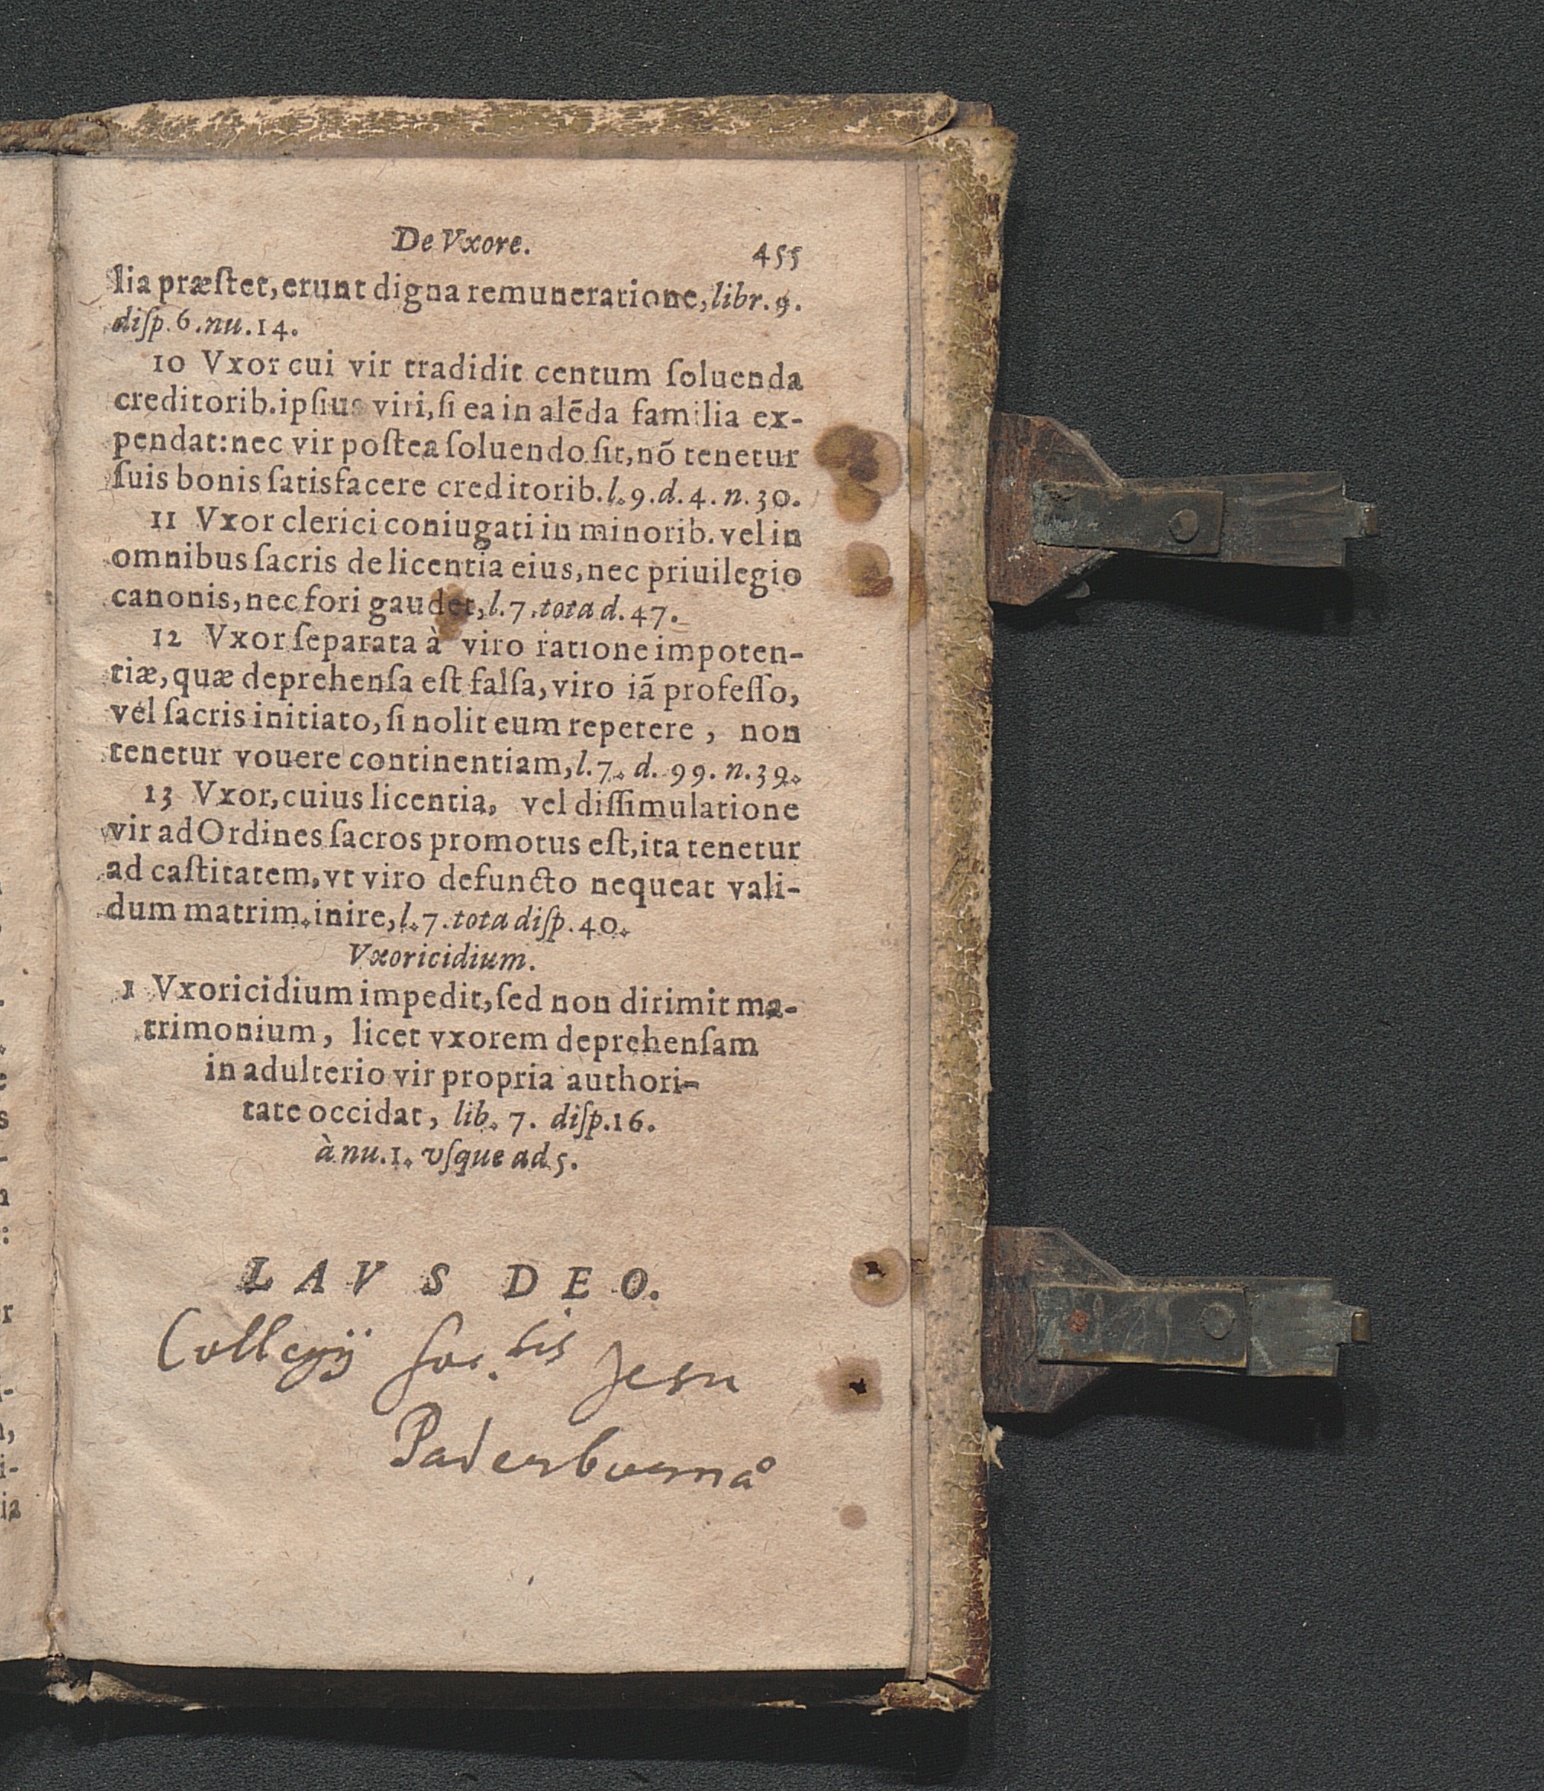 De Vxore. 455
lia præſtet, erunt digna remuneratione, libr. 9.
diſp. 6. nu. 14.
10 Vxor cui vir tradidit centum ſoluenda
creditorib. ipſius viri, ſi ea in alẽda familia ex-
pendat: nec vir poſtea ſoluendo ſit, nõ tenetur
ſuis bonis ſatisfacere creditorib. l. 9. d. 4. n. 30.
11 Vxor clerici coniugati in minorib. vel in
omnibus ſacris de licentia eius, nec priuilegio
canonis, nec fori gaudet, l. 7. tota d. 47.
12 Vxor ſeparata à viro ratione impoten-
tiæ, quæ deprehenſa eſt falſa, viro iã profeſſo,
vel ſacris initiato, ſi nolit eum repetere, non
tenetur vouere continentiam, l. 7. d. 99. n. 39.
13 Vxor, cuius licentia, vel diſſimulatione
vir ad Ordines ſacros promotus eſt, ita tenetur
ad caſtitatem, vt viro defuncto nequeat vali-
dum matrim. inire, l. 7. tota diſp. 40.
Vxoricidium.
1 Vxoricidium impedit, ſed non dirimit ma-
trimonium, licet vxorem deprehenſam
in adulterio vir propria authori-
tate occidat, lib. 7. diſp. 16.
à nu. 1. vſque ad 5.
LAVS DEO.
Collegij Soc.tis Jesu
Paderbornå